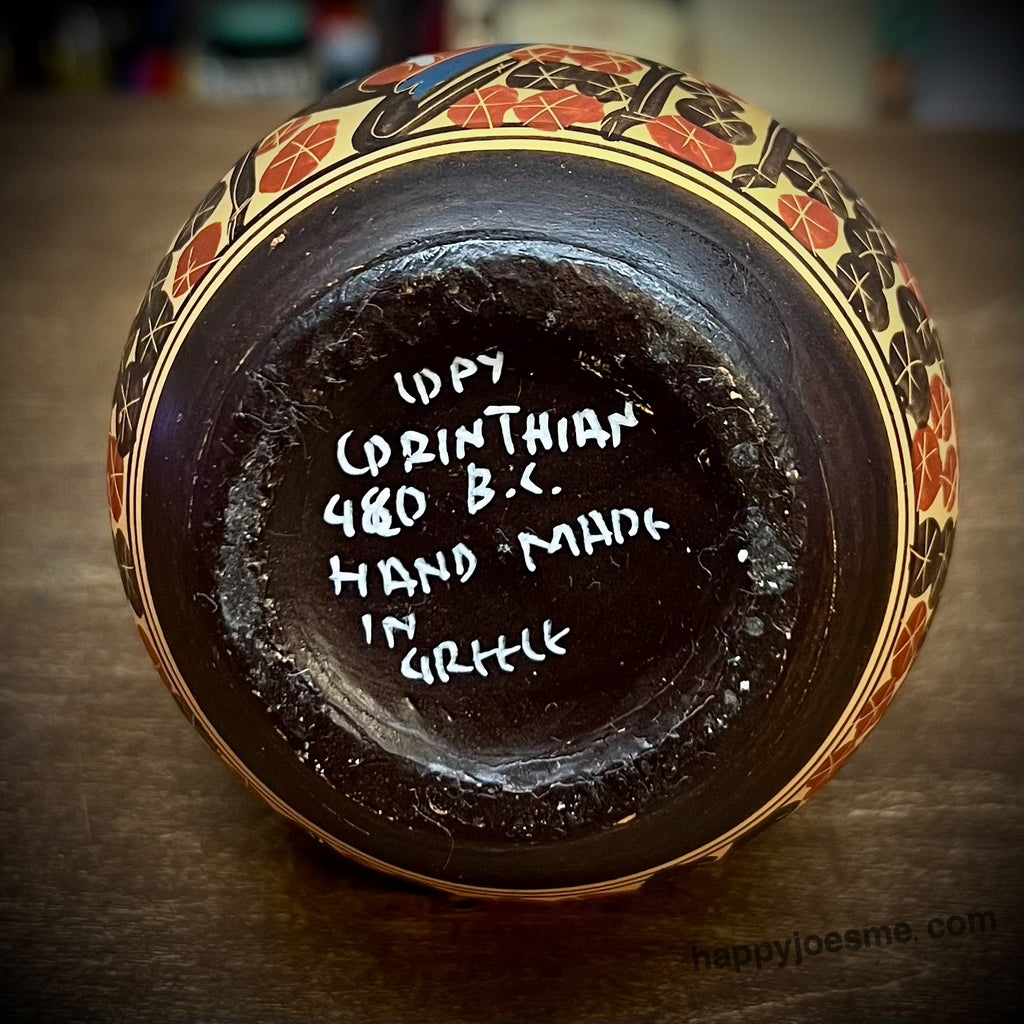 COPY
CORINTHIAN
480 B.C.
HAND MADE
IN
GREECE
happyjoesme.com